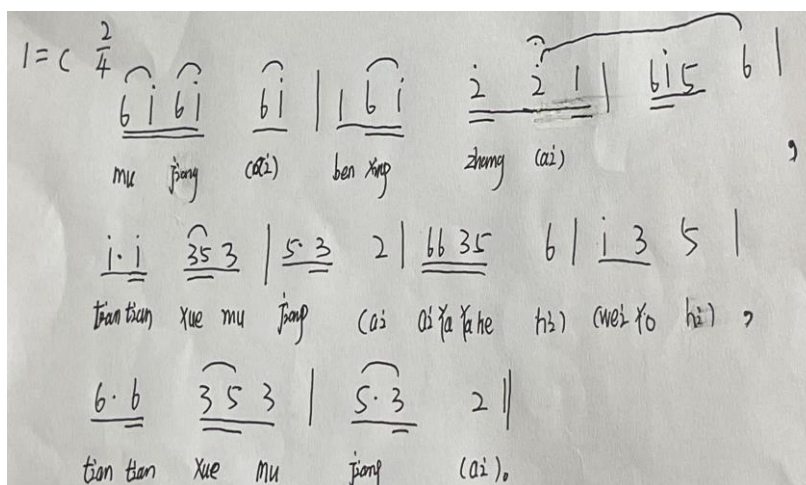 1=C 2/4
6 i 6i 6i | 1 6 i 2 2 1 | 6i5 6 |
mu jiang (ai) ben xing zhang (ai) ,
i· i 35 3 | 5· 3 2 | 66 35 6 | i 3 5 |
tian tian xue mu jiang (ai ai ya ya he hi) (wei yo hi) ,
6· 6 3 5 3 | 5· 3 2 ||
tian tian xue mu jiang (ai).